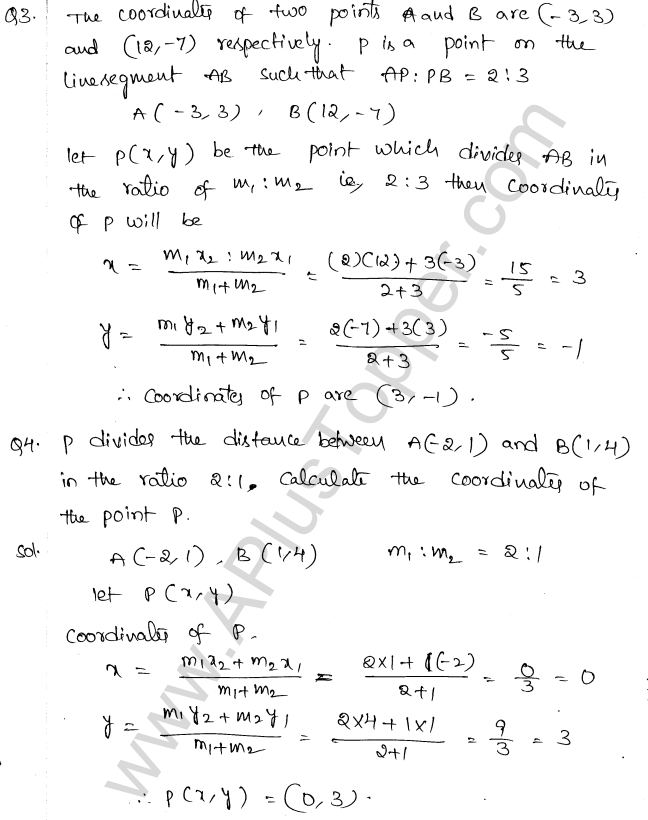 Q3. The coordinates of two points A and B are (-3,3)
and (12,-7) respectively. P is a point on the
linesegment AB such that AP:PB = 2:3
A(-3,3), B(12,-7)
let P(x,y) be the point which divides AB in
the ratio of m₁:m₂ ie, 2:3 then coordinates
of P will be
x = (m₁x₂ : m₂x₁)/(m₁+m₂) = ((2)(12)+3(-3))/(2+3) = 15/5 = 3
y = (m₁y₂+m₂y₁)/(m₁+m₂) = (2(-7)+3(3))/(2+3) = -5/5 = -1
∴ coordinates of P are (3,-1).
Q4. P divides the distance between A(-2,1) and B(1,4)
in the ratio 2:1. Calculate the coordinates of
the point P.
Sol. A(-2,1), B(1,4) m₁:m₂ = 2:1
let P(x,y)
Coordinates of P.
x = (m₁x₂+m₂x₁)/(m₁+m₂) = (2×1+1(-2))/(2+1) = 0/3 = 0
y = (m₁y₂+m₂y₁)/(m₁+m₂) = (2×4+1×1)/(2+1) = 9/3 = 3
∴ P(x,y) = (0,3).
www.APlusTopper.com